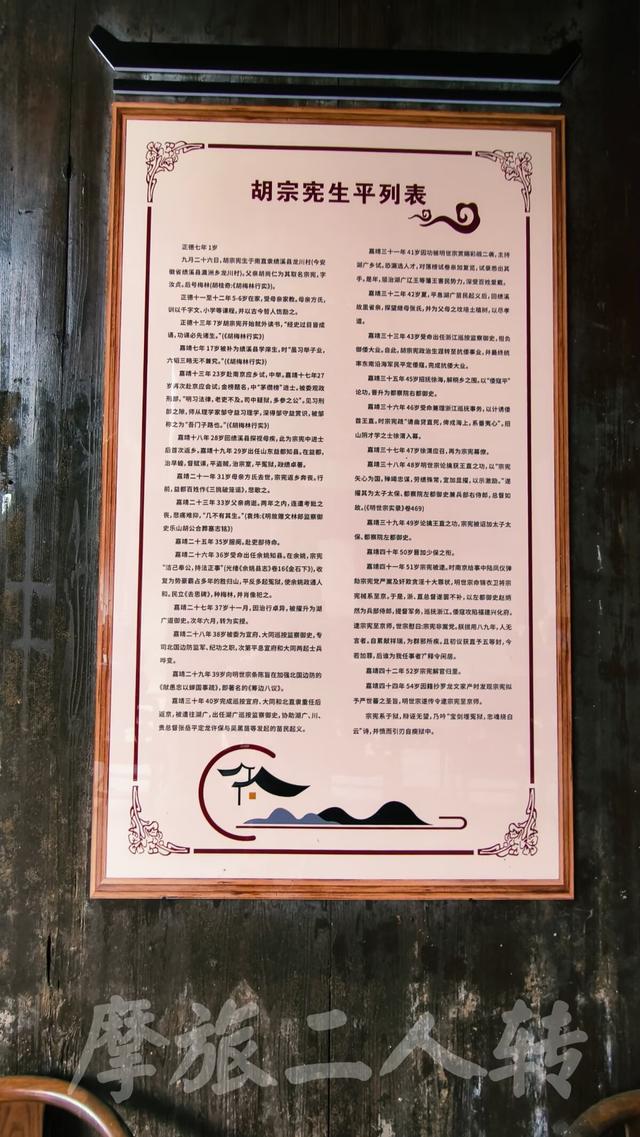 胡宗宪生平列表
正德七年 1岁
九月二十六日，胡宗宪生于南直隶绩溪县龙川村(今安
徽省绩溪县瀛洲乡龙川村)。父亲胡尚仁为其取名宗宪，字
汝贞。后号梅林(胡桂奇:《胡梅林行实》)。
正德十一至十二年 5-6岁在家，受母亲家教。母亲方氏，
训以千字文、小学等课程，并以古今哲人饬励之。
正德十三年 7岁胡宗宪开始就外读书，"经史过目皆成
诵，功课必先诸生。"(《胡梅林行实》)
嘉靖七年 17岁被补为绩溪县学庠生，时"虽习举子业，
六韬三略无不兼究。"(《胡梅林行实》)
嘉靖十三年 23岁赴南京应乡试，中举。嘉靖十七年27
岁再次赴京应会试；金榜题名，中"茅瓒榜"进士，被委观政
刑部。"明习法律，老吏不及。司中疑狱，多参之公"，见习刑
部之隙，师从理学家邹守益习理学，深得守益赏识，被邹
称之为"吾门子路也。"(《胡梅林行实》)
嘉靖十八年 28岁回绩溪县探视母疾，此为宗宪中进士
后首次返乡。嘉靖十九年 29岁出任山东益都知县。在益都，
治旱蝗，督赋课，平盗贼，治宗室，平冤狱，政绩卓著。
嘉靖二十一年 31岁母亲方氏去世，宗宪返乡奔丧。行
前，益都百姓作《三挑破笼谣》，悲歌之。
嘉靖二十三年 33岁父亲病逝。两年之内，连遭考妣之
丧，悲痛难抑，"几不有其生。"(袁炜:《明故赠文林郎监察御
史乐山胡公合葬墓志铭》)
嘉靖二十五年 35岁服阕。赴吏部待命。
嘉靖二十六年 36岁受命出任余姚知县。在余姚，宗宪
"洁己奉公，持法正事"(光绪《余姚县志》卷16《金石下》)，收
复为势豪霸占多年的胜归山，平反多起冤狱，使余姚政通人
和。民立《去思碑》，种梅林，并肖像祀之。
嘉靖二十七年 37岁十一月，因治行卓异，被擢升为湖
广道御史。次年六月，转为实授。
嘉靖二十八年 38岁被委为宣府、大同巡按监察御史，专
司北国边防监军、纪功之职，次第平息宣府和大同两起士兵
哗变。
嘉靖二十九年 39岁向明世宗条陈旨在加强北国边防的
《献愚忠以蝉国事疏》，即著名的《筹边八议》。
嘉靖三十年 40岁完成巡按宣府、大同和北直隶重任后
返京，被遣往湖广，出任湖广巡按监察御史，协助湖广、川、
贵总督张岳平定龙许保与吴黑苗等发起的苗民起义。
嘉靖三十一年 41岁因功被明世宗赏赐彩缎二袭，主持
湖广乡试，恐漏选人才，对落榜试卷亲加复览，试录悉出其
手。是年，惩治湖广辽王等藩王害民势力，深受百姓爱戴。
嘉靖三十二年 42岁夏，平息湖广苗民起义后，回绩溪
故里省亲，探望继母张氏，并为父母之坟培土植树，以尽孝
道。
嘉靖三十三年 43岁受命出任浙江巡按监察御史，担负
御倭大业。自此，胡宗宪政治生涯转至抗倭事业，并最终统
率东南沿海军民平定倭寇，完成抗倭大业。
嘉靖三十五年 45岁招抚徐海，解桐乡之围。以"倭寇平"
论功，晋升为都察院右都御史。
嘉靖三十六年 46岁受命兼理浙江巡抚事务，以计诱倭
酋王直。时宗宪疏"请曲贷直死，俾戍海上，系番夷心"。招
山阴才学之士徐渭入幕。
嘉靖三十七年 47岁徐渭应召，再为宗宪幕僚。
嘉靖三十八年 48岁明世宗论擒获王直之功，以"宗宪
矢心为国，殚竭忠谋，劳绩殊常，宜加显擢，以示激励。"遂
擢其为太子太保、都察院左都御史兼兵部右侍郎，总督如
故。(《明世宗实录》卷469)
嘉靖三十九年 49岁论擒王直之功，宗宪被诏加太子太
保、都察院左都御史。
嘉靖四十年 50岁晋加少保之衔。
嘉靖四十一年 51岁宗宪被逮。时南京给事中陆凤仪弹
劾宗宪党严嵩及奸欺贪淫十大罪状，明世宗命锦衣卫将宗
宪械系至京。于是，浙、直总督遂罢不补，以左都御史赵炳
然为兵部侍郎，提督军务，巡抚浙江。倭寇攻陷福建兴化府。
逮宗宪至京师。世宗慰曰:宗宪非嵩党。朕拔用八九年，人无
言者。自累献祥瑞，为群邪所疾。且初议获直予五等封，今
若加罪，后谁为我任事者?释令闲居。
嘉靖四十二年 52岁宗宪解官归里。
嘉靖四十四年 54岁因籍抄罗龙文家产时发现宗宪拟
予严世蕃之圣旨，明世宗遂传令逮宗宪至京师。
宗宪系于狱，辩诬无望，乃吟"宝剑埋冤狱，忠魂绕白
云"诗，并愤而引刃自瘐狱中。
摩旅二人转